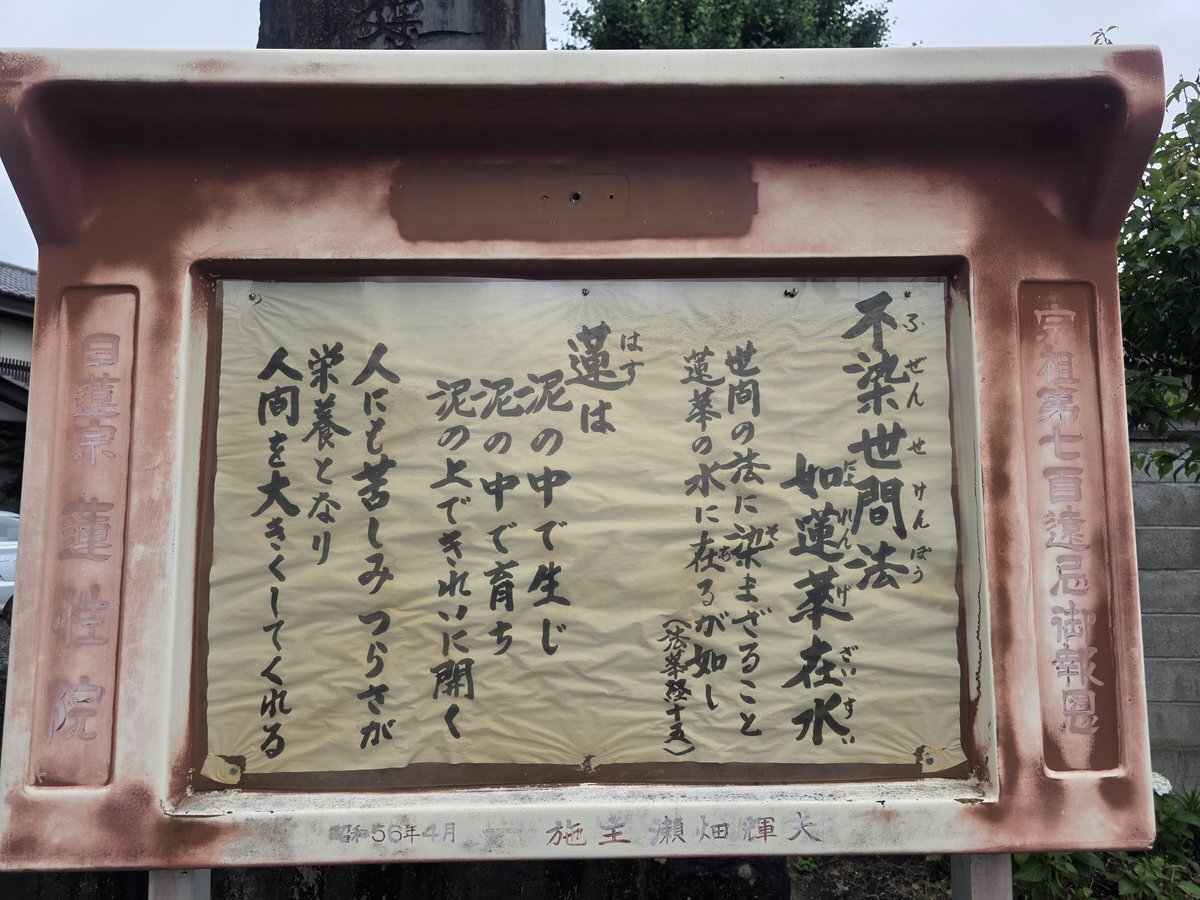 宗祖第七百遠忌御報恩
不染世間法
ふぜんせけんぽう
如蓮華在水
にょれんげざいすい
世間の法に染まざること
そ
蓮華の水に在るが如し
あ
(法華経十五)
蓮は
はす
泥の中で生じ
泥の中で育ち
泥の上できれいに開く
人にも苦しみ つらさが
栄養となり
人間を大きくしてくれる
日蓮宗 蓮性院
昭和56年4月 施主 瀬畑輝夫